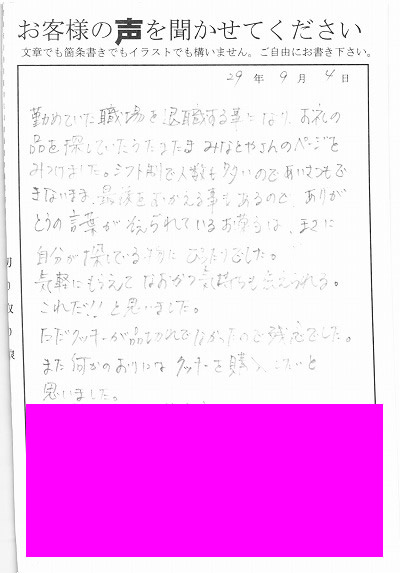 お客様の声を聞かせてください
文章でも箇条書きでもイラストでも構いません。ご自由にお書き下さい。
29年9月4日
勤めていた職場を退職する事になり、お礼の
品を探していたらたまたまみなとやさんのページを
みつけました。シフト制で人数も多いのであいさつもで
きないまま、最後をむかえる事もあるので、ありが
とうの言葉が添えられているお菓子は、まさに
自分が探している物にぴったりでした。
気軽にもらえてなおかつ気持ちも伝えられる。
これだ!!と思いました。
ただクッキーが品切れでなかったので残念でした。
また何かのおりにはクッキーを購入したいと
思いました。
切り取り線